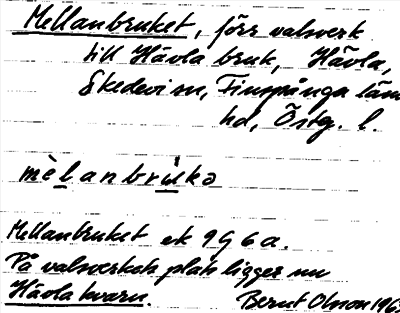 Mellanbruket, förr valsverk
till Hävla bruk, Hävla,
Skedevi sn, Finspånga län
hd, Östg. l.
mèlanbrùkə
Mellanbruket ek 9G6a.
På valsverkets plats ligger nu
Hävla kvarn. Bernt Olsson